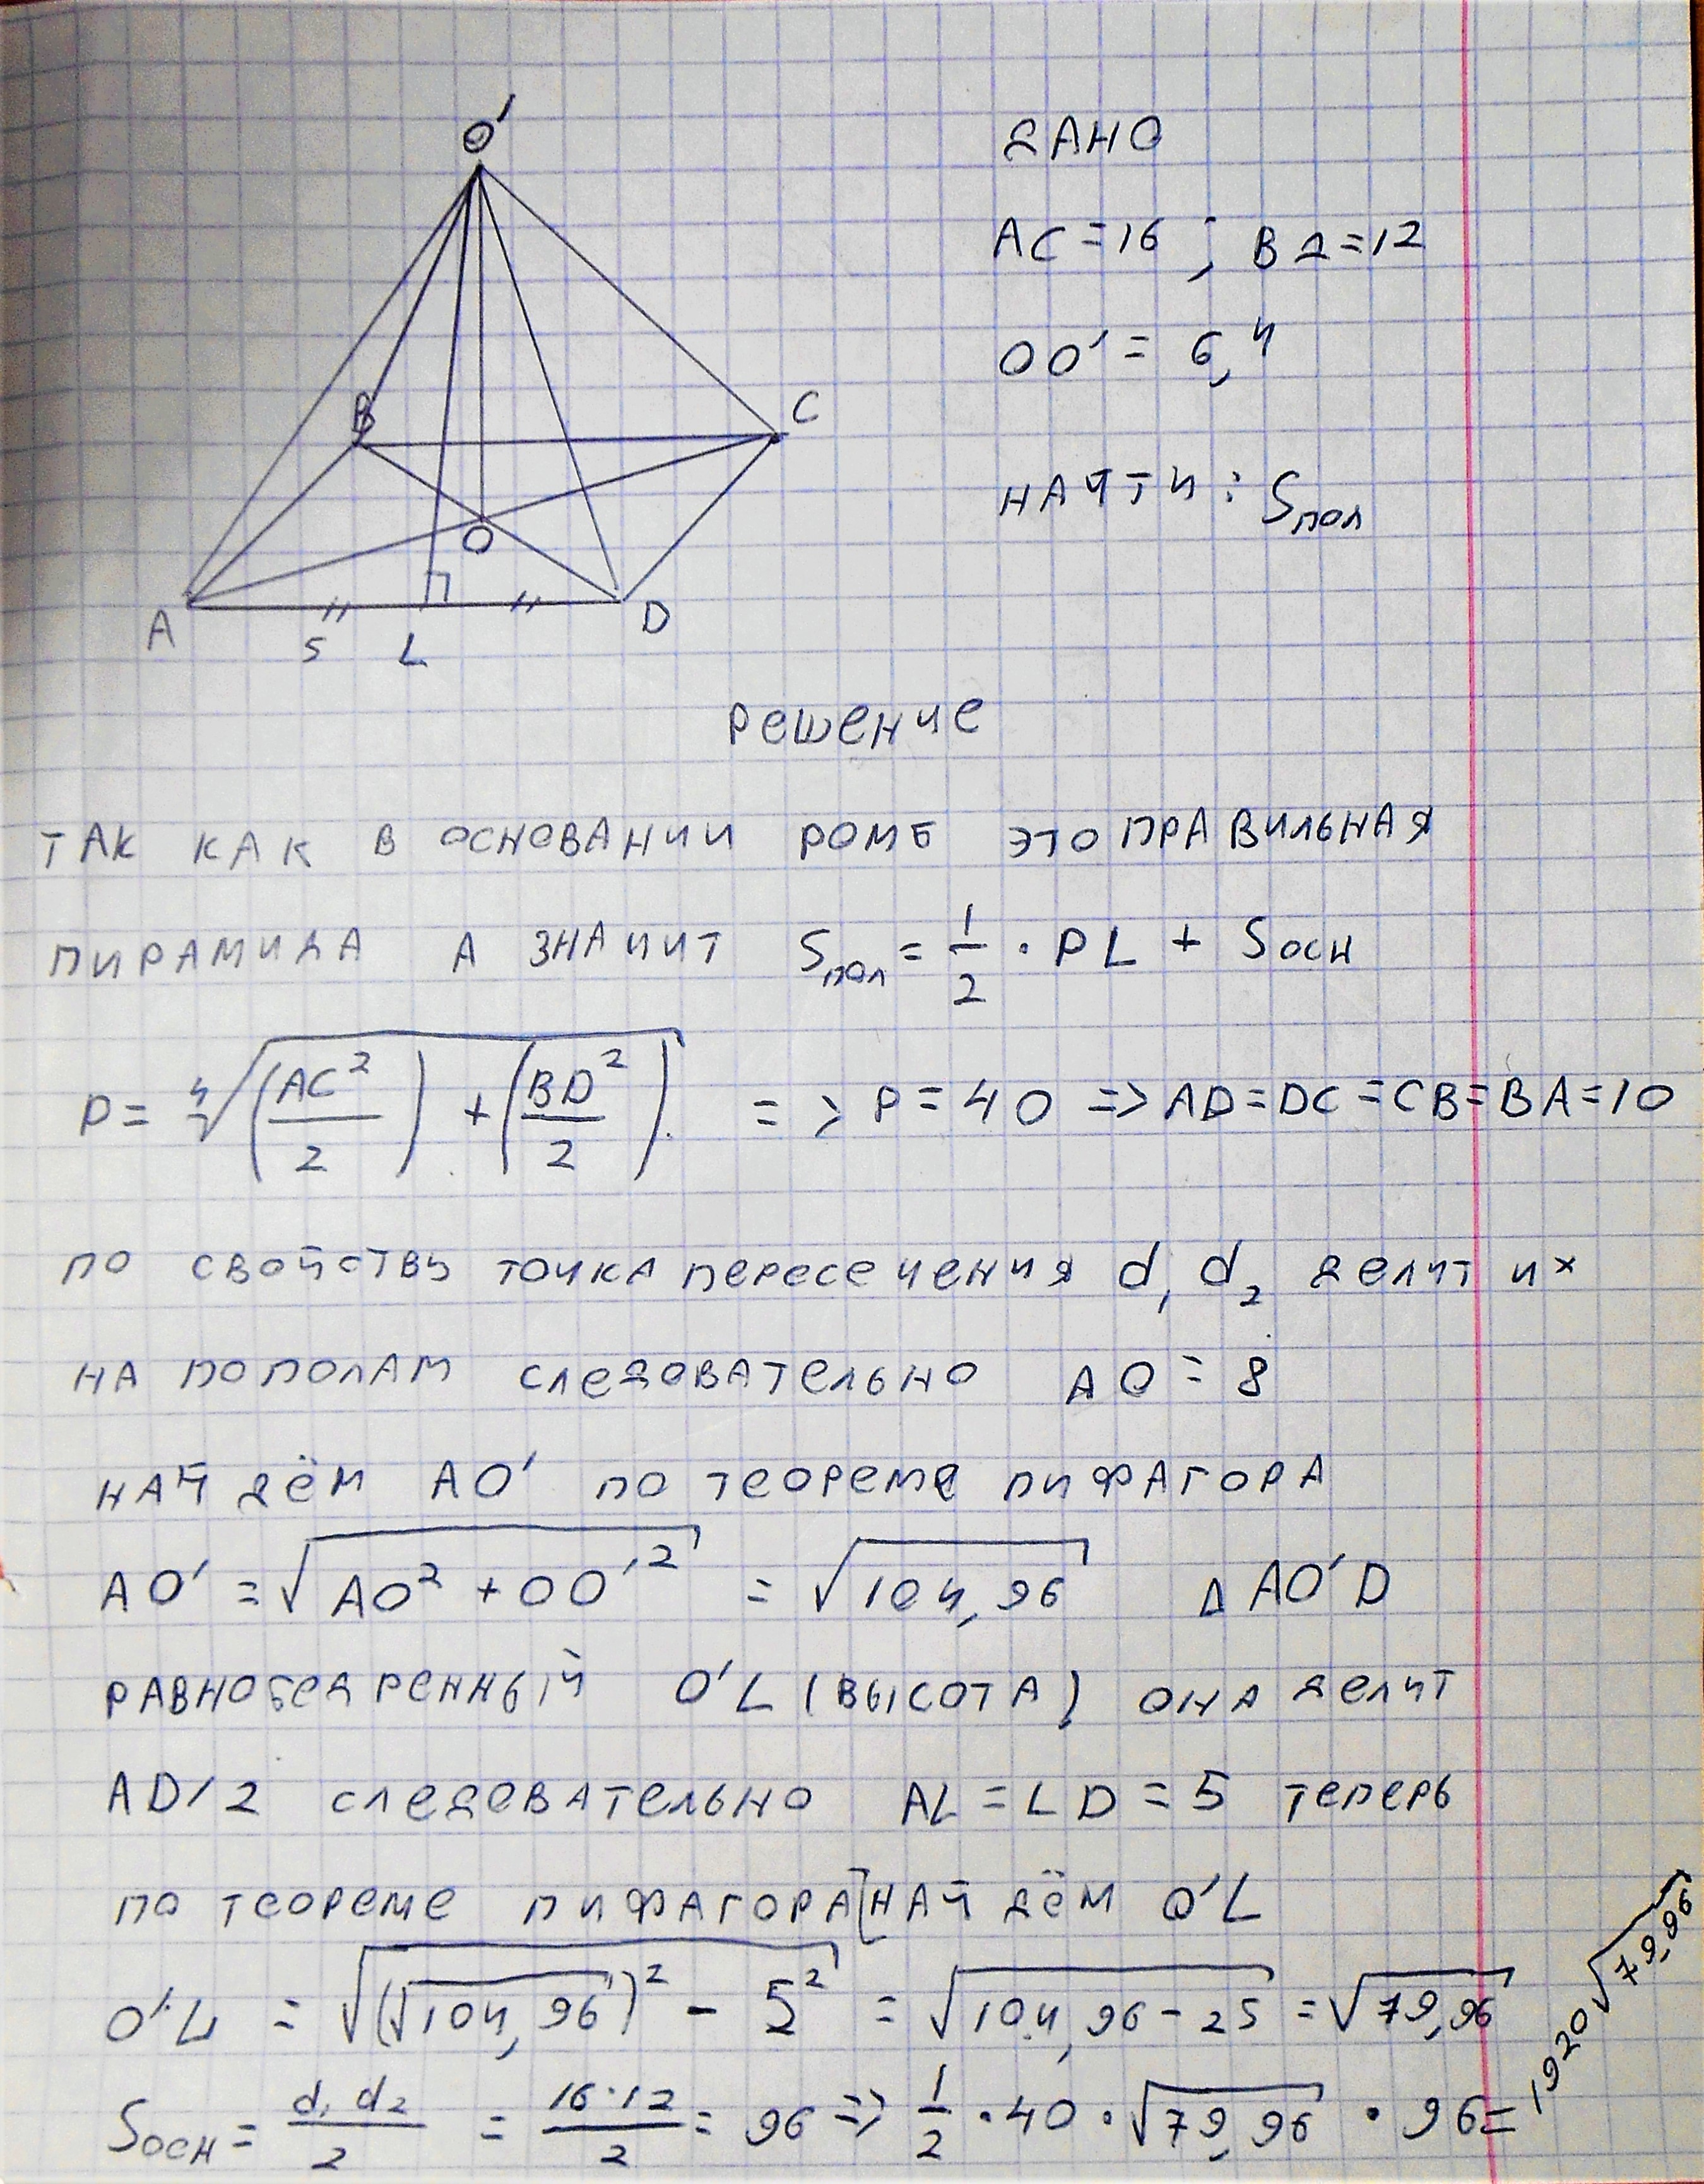 O'
B
C
O
A
D
S
L
ДАНО
AC = 16 ; BД = 12
OO' = 6,4
НАЙТИ : Sпол
Решение
ТАК КАК В ОСНОВАНИИ РОМБ ЭТО ПРАВИЛЬНАЯ
ПИРАМИДА А ЗНАЧИТ Sпол = 1/2 · PL + Sосн
P = 4√(AC²/2) + (BD²/2) => P = 40 => AD = DC = CB = BA = 10
ПО СВОЙСТВУ ТОЧКА ПЕРЕСЕЧЕНИЯ d₁ d₂ ДЕЛИТ ИХ
НА ПОПОЛАМ СЛЕДОВАТЕЛЬНО AO = 8
НАЙДЁМ AO' ПО ТЕОРЕМЕ ПИФАГОРА
AO' = √AO² + OO'² = √104,96 Δ AO'D
РАВНОБЕДРЕННЫЙ O'L (ВЫСОТА) ОНА ДЕЛИТ
AD/2 СЛЕДОВАТЕЛЬНО AL = LD = 5 ТЕПЕРЬ
ПО ТЕОРЕМЕ ПИФАГОРА НАЙДЁМ O'L
O'L = √(√104,96)² - 5² = √104,96 - 25 = √79,96
Sосн = d₁ d₂/2 = 16·12/2 = 96 => 1/2 · 40 · √79,96 · 96 = 1920√79,96